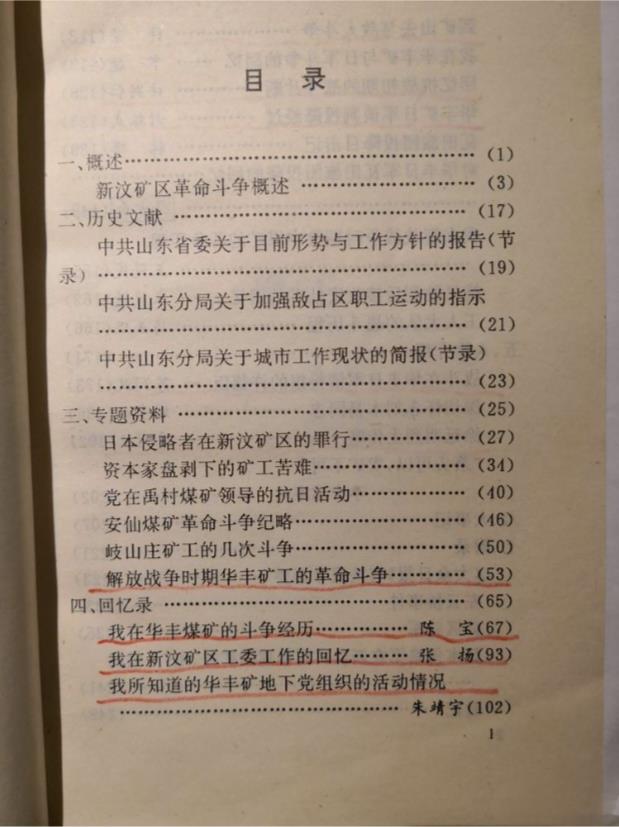 目 录
一、概述……………………………………………(1)
新汶矿区革命斗争概述 ……………………(3)
二、历史文献 ………………………………………(17)
中共山东省委关于目前形势与工作方针的报告(节
录)……………………………………………(19)
中共山东分局关于加强敌占区职工运动的指示
……………………………………………(21)
中共山东分局关于城市工作现状的简报(节录)
……………………………………………(23)
三、专题资料 ………………………………………(25)
日本侵略者在新汶矿区的罪行……………(27)
资本家盘剥下的矿工苦难…………………(34)
党在禹村煤矿领导的抗日活动……………(40)
安仙煤矿革命斗争纪略……………………(46)
岐山庄矿工的几次斗争……………………(50)
解放战争时期华丰矿工的革命斗争…………(53)
四、回忆录 …………………………………………(65)
我在华丰煤矿的斗争经历………… 陈 宝(67)
我在新汶矿区工委工作的回忆……… 张 扬(93)
我所知道的华丰矿地下党组织的活动情况
………………………………… 朱靖宇(102)
1